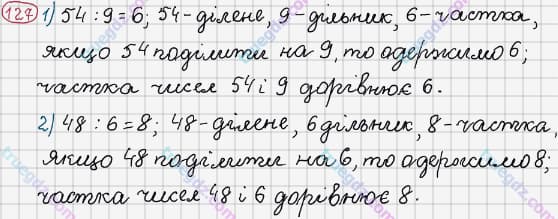 127 1) 54 : 9 = 6; 54 - ділене, 9 - дільник, 6 - частка,
якщо 54 поділити на 9, то одержимо 6;
частка чисел 54 і 9 дорівнює 6.
2) 48 : 6 = 8; 48 - ділене, 6 дільник, 8 - частка,
якщо 48 поділити на 6, то одержимо 8;
частка чисел 48 і 6 дорівнює 8.